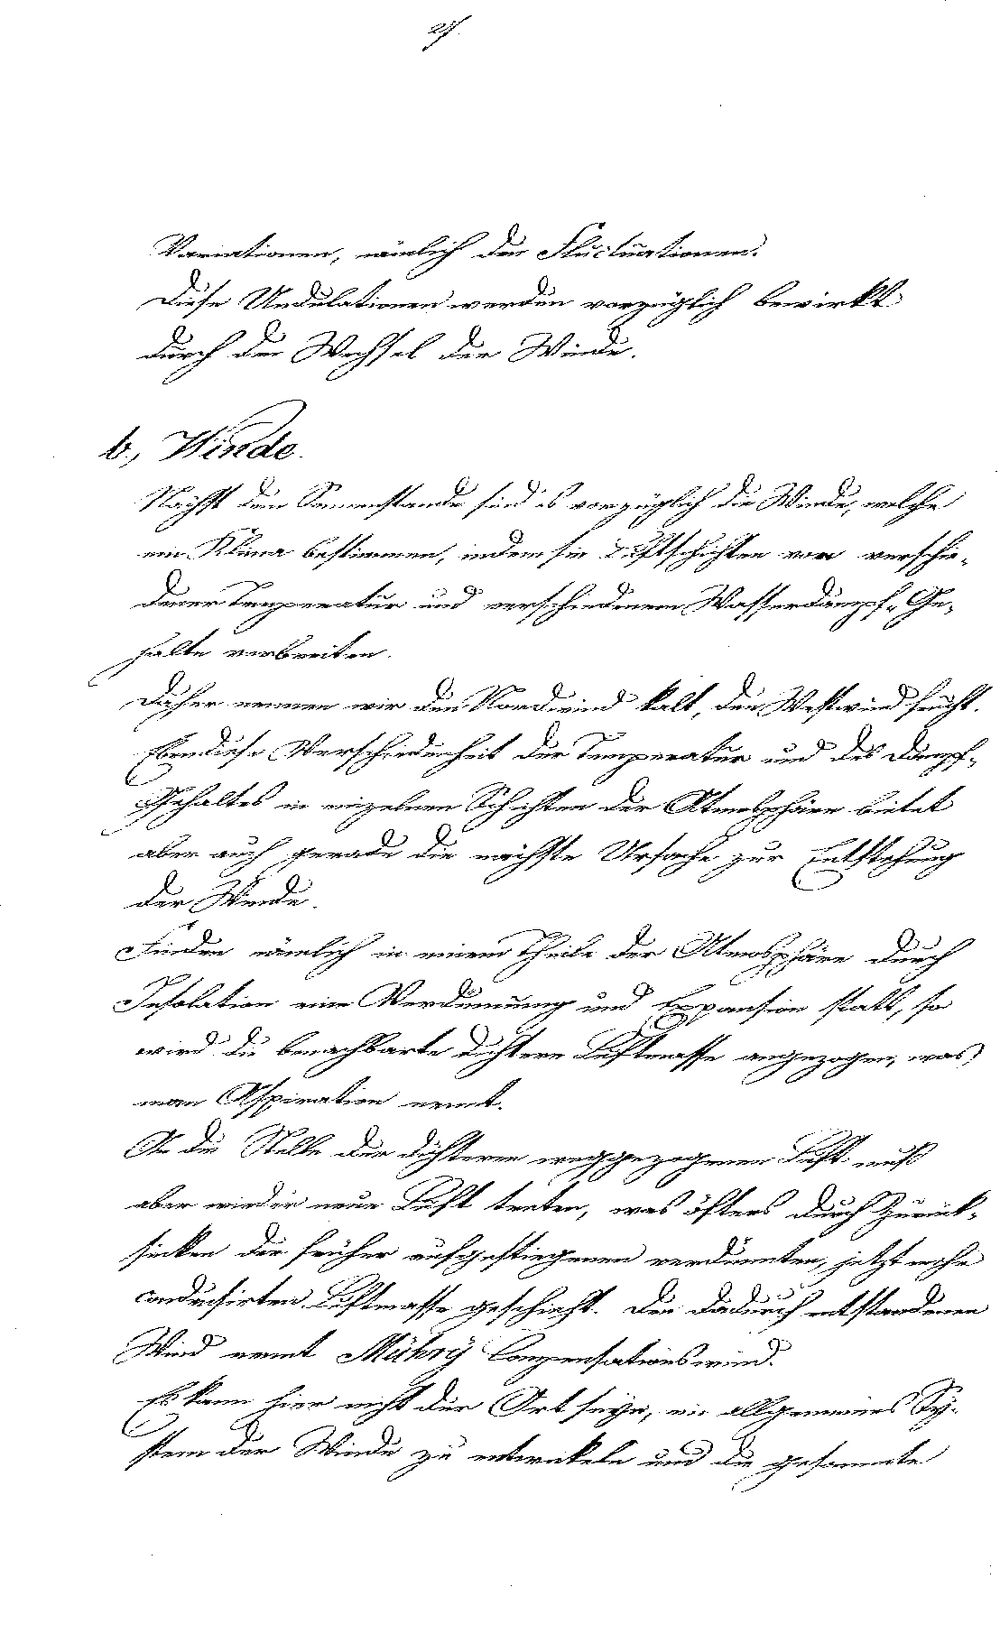 27.
Variationen, nämlich der Fluctuationen.
Diese Undulationen werden vorzüglich bewirkt
durch den Wechsel der Winde.
b., Winde.
Nächst dem Sonnenstande sind es vorzüglich die Winde, welche
ein Klima bestimmen, indem sie Luftschichten von verschie-
dener Temperatur und verschiedenem Wasserdampf-Ge-
halte verbreiten.
Daher nennen wir den Nordwind kalt, den Westwind feucht.
Ebendiese Verschiedenheit der Temperatur und des Dampf-
Gehaltes in einzelnen Schichten der Atmosphäre bietet
aber auch gerade die nächste Ursache zur Entstehung
der Winde.
Finden nämlich in einem Theile der Atmosphäre durch
Insolation eine Verdünnung und Expansion statt, so
wird die benachbarte dichtere Luftmasse angezogen, was
man Aspiration nennt.
An die Stelle der dichteren weggezogenen Luft muß
aber wieder neue Luft treten, was öfters durch Zurück-
sinken der früher aufgestiegenen verdünnten, jetzt mehr
condensirten Luftmasse geschieht. Den dadurch entstandenen
Wind nennt Mühry Compensationswind.
Es kann hier nicht der Ort seyn, ein allgemeines Sy-
stem der Winde zu entwickeln und die gesammte